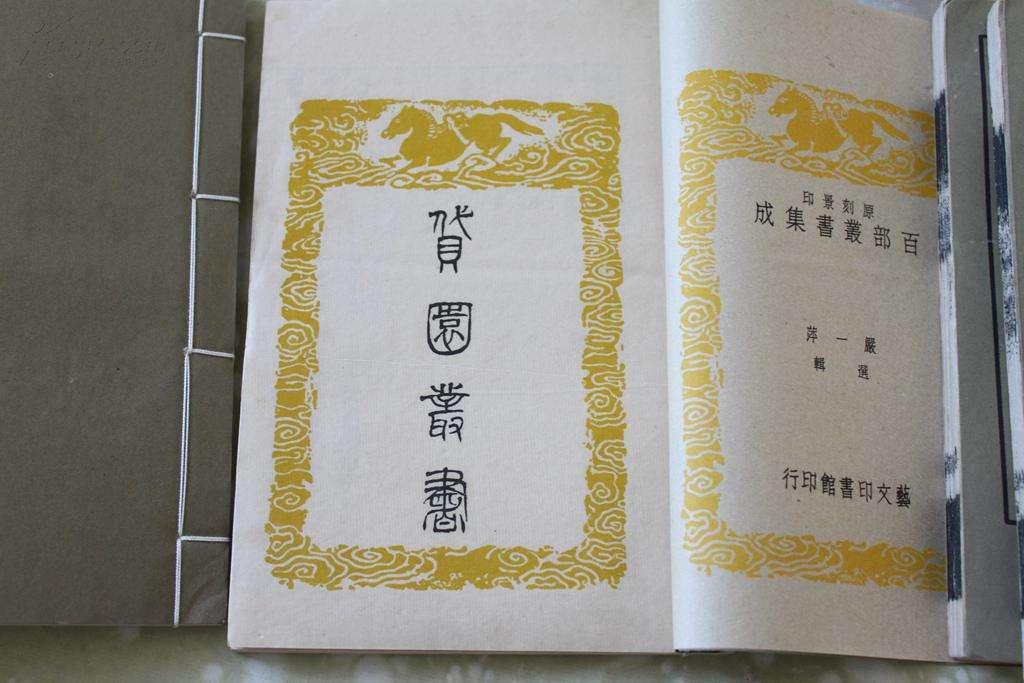 原刻景印
百部叢書集成
嚴一萍
選輯
藝文印書館印行
貸園叢書